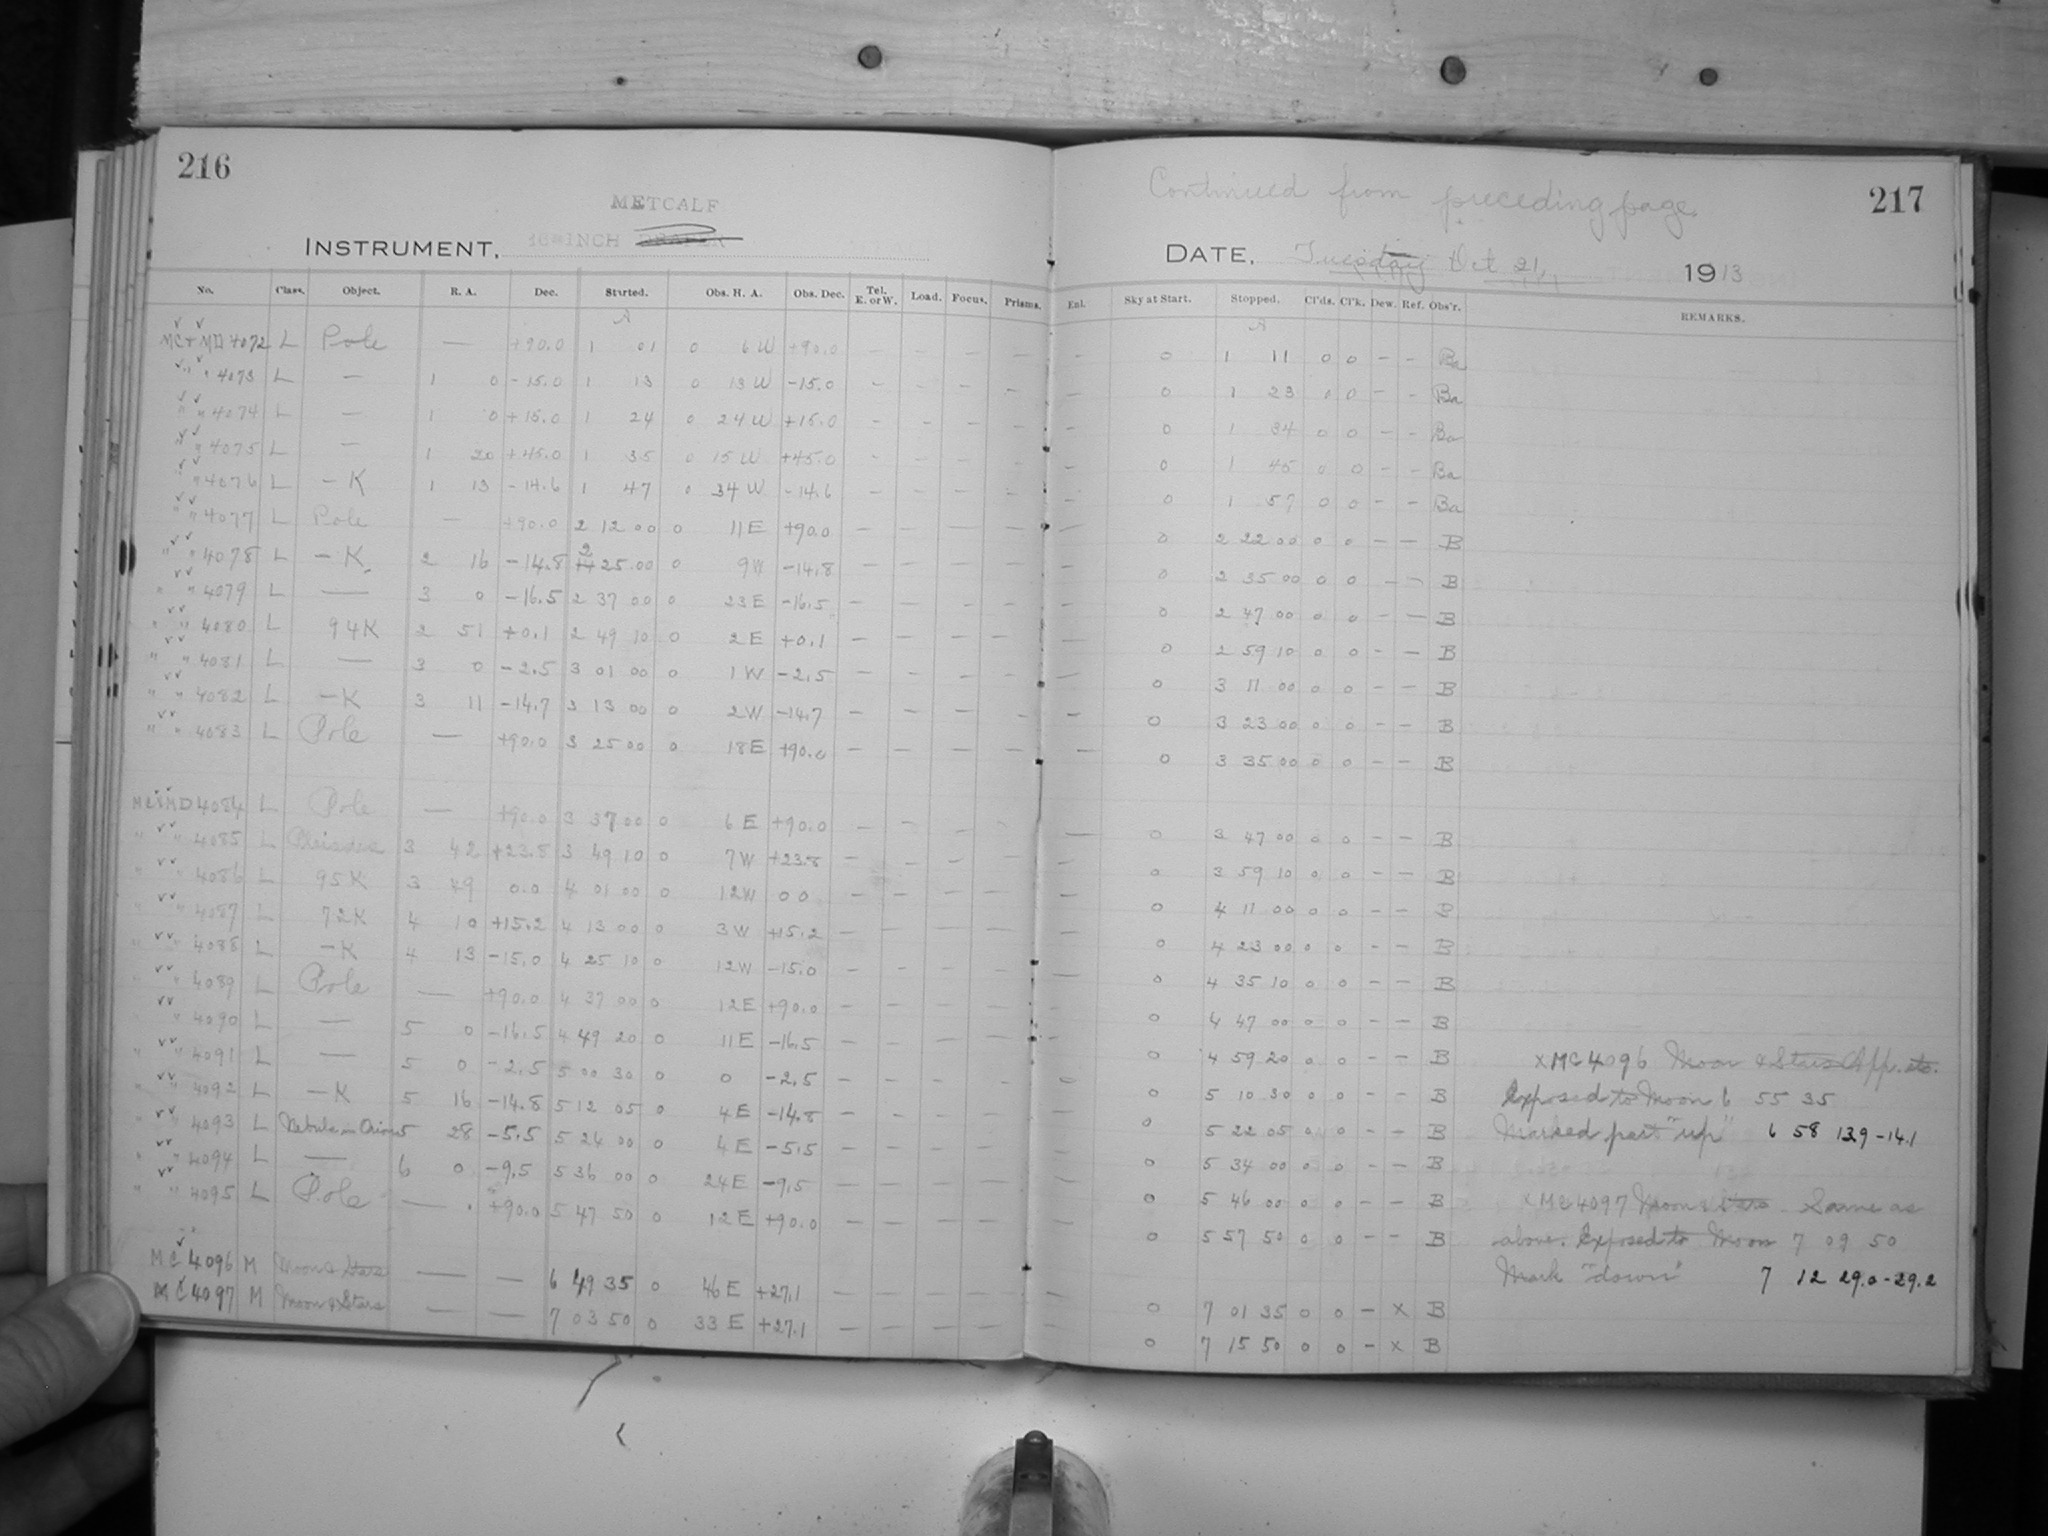 216
METCALF
INSTRUMENT, 16-INCH
No. Class. Object. R. A. Dec. Started. Obs. H. A. Obs. Dec. Tel. E. or W. Load. Focus. Prisms.
MC + MD 4072 L Pole — +90.0 1 01 0 6 W +90.0 — — — —
" " 4073 L — 1 0 -15.0 1 13 0 13 W -15.0 — — — —
" " 4074 L — 1 0 +15.0 1 24 0 24 W +15.0 — — — —
" " 4075 L — 1 20 +45.0 1 35 0 15 W +45.0 — — — —
" " 4076 L — K 1 13 -14.6 1 47 0 34 W -14.6 — — — —
" " 4077 L Pole — +90.0 2 12 00 0 11 E +90.0 — — — —
" " 4078 L — K 2 16 -14.8 2 25 00 0 9 W -14.8 — — — —
" " 4079 L — 3 0 -16.5 2 37 00 0 23 E -16.5 — — — —
" " 4080 L 94K 2 51 +0.1 2 49 10 0 2 E +0.1 — — — —
" " 4081 L — 3 0 -2.5 3 01 00 0 1 W -2.5 — — — —
" " 4082 L — K 3 11 -14.7 3 13 00 0 2 W -14.7 — — — —
" " 4083 L Pole — +90.0 3 25 00 0 18 E +90.0 — — — —
MC & MD 4084 L Pole — +90.0 3 37 00 0 6 E +90.0 — — — —
" " 4085 L Pleiades 3 42 +23.8 3 49 10 0 7 W +23.8 — — — —
" " 4086 L 95K 3 49 0.0 4 01 00 0 12 W 0 0 — — — —
" " 4087 L 72K 4 10 +15.2 4 13 00 0 3 W +15.2 — — — —
" " 4088 L — K 4 13 -15.0 4 25 10 0 12 W -15.0 — — — —
" " 4089 L Pole — +90.0 4 37 00 0 12 E +90.0 — — — —
" " 4090 L — 5 0 -16.5 4 49 20 0 11 E -16.5 — — — —
" " 4091 L — 5 0 -2.5 5 00 30 0 0 -2.5 — — — —
" " 4092 L — K 5 16 -14.8 5 12 05 0 4 E -14.8 — — — —
" " 4093 L Nebula in Orion 5 28 -5.5 5 24 00 0 4 E -5.5 — — — —
" " 4094 L — 6 0 -9.5 5 36 00 0 24 E -9.5 — — — —
" " 4095 L Pole — +90.0 5 47 50 0 12 E +90.0 — — — —
MC 4096 M Moon & Stars — — 6 49 35 0 46 E +27.1 — — — —
MC 4097 M Moon & Stars — — 7 03 50 0 33 E +27.1 — — — —
Continued from preceding page.
217
DATE, Tuesday Oct 21, 1913
Enl. Sky at Start. Stopped. Cl'ds. Cl'k. Dew. Ref. Obs'r. REMARKS.
— 0 1 11 0 0 — — Ba
— 0 1 23 0 0 — — Ba
— 0 1 34 0 0 — — Ba
— 0 1 45 0 0 — — Ba
— 0 1 57 0 0 — — Ba
— 0 2 22 00 0 0 — — B
— 0 2 35 00 0 0 — — B
— 0 2 47 00 0 0 — — B
— 0 2 59 10 0 0 — — B
— 0 3 11 00 0 0 — — B
— 0 3 23 00 0 0 — — B
— 0 3 35 00 0 0 — — B
— 0 3 47 00 0 0 — — B
— 0 3 59 10 0 0 — — B
— 0 4 11 00 0 0 — — B
— 0 4 23 00 0 0 — — B
— 0 4 35 10 0 0 — — B
— 0 4 47 00 0 0 — — B
— 0 4 59 20 0 0 — — B
— 0 5 10 30 0 0 — — B
— 0 5 22 05 0 0 — — B
— 0 5 34 00 0 0 — — B
— 0 5 46 00 0 0 — — B
— 0 5 57 50 0 0 — — B
— 0 7 01 35 0 0 — X B
— 0 7 15 50 0 0 — X B
X MC 4096 Moon & Stars App. etc.
Exposed to Moon 6 55 35
Marked part "up" 6 58 13.9 - 14.1
X MC 4097 Moon & Stars Same as
above. Exposed to Moon 7 09 50
Mark "down" 7 12 29.0 - 29.2